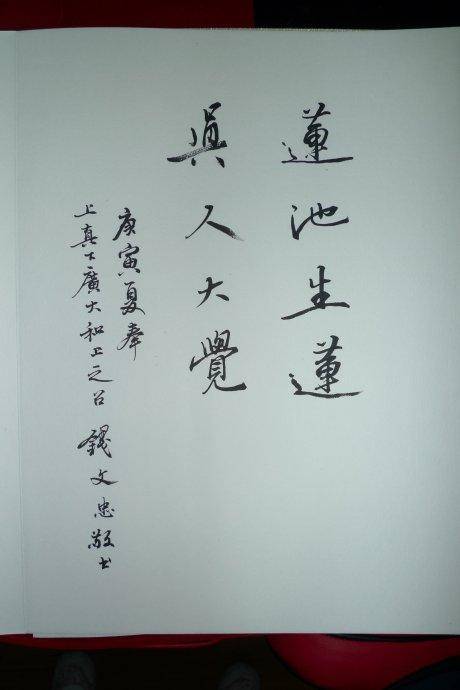 蓮池生蓮
眞人大覺
庚寅夏奉
上真下廣大和上之召
錢文忠敬书